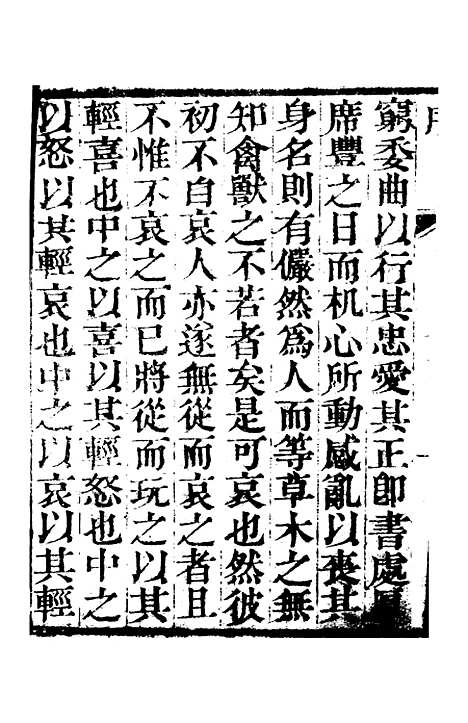 窮委曲以行其忠愛其正卽書處
席豐之日而机心所動感亂以喪其
身名則有儼然爲人而等草木之無
知禽獸之不若者矣是可哀也然彼
初不自哀人亦遂無從而哀之者且
不惟不哀之而已將從而玩之以其
輕喜也中之以喜以其輕怒也中之
以怒以其輕哀也中之以哀以其輕